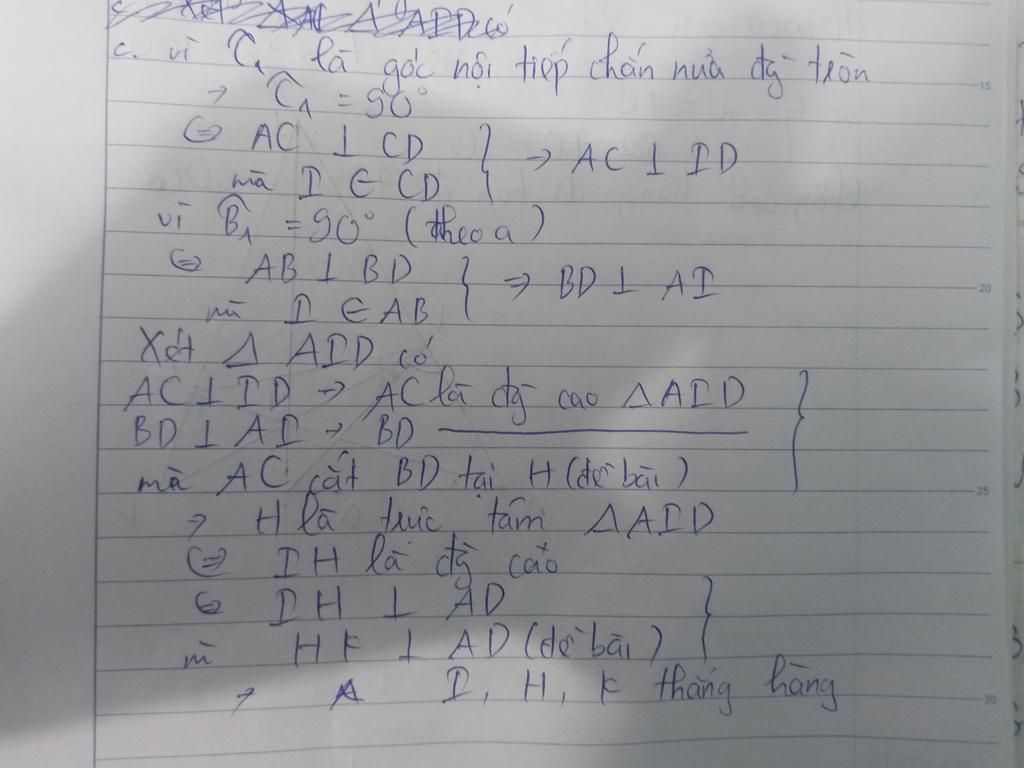 có
c. vì Ĉ₁ là góc nội tiếp chắn nửa đg tròn
→ Ĉ₁ = 90°
⇔ AC ⊥ CD
mà I ∈ CD } → AC ⊥ ID
vì B̂₁ = 90° (theo a)
⇔ AB ⊥ BD
mà I ∈ AB } ⇒ BD ⊥ AI
Xét Δ AID có
AC ⊥ ID → AC là đg cao ΔAID
BD ⊥ AI → BD ————
mà AC cắt BD tại H (đề bài) }
→ H là trực tâm ΔAID
⇔ IH là đg cao
⇔ IH ⊥ AD
m HK ⊥ AD (đề bài) }
→ I, H, K thẳng hàng